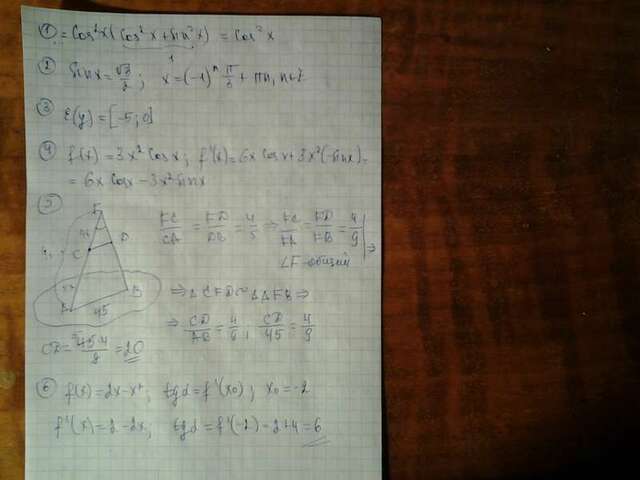 ① = cos²x(cos²x + sin²x) = cos²x
1
② sinx = √3/2; x = (-1)ⁿ π/3 + πn, n∈Z
③ E(y) = [-5; 0]
④ f(x) = 3x² cosx; f'(x) = 6x cosx + 3x²(-sinx) =
= 6x cosx - 3x² sinx
⑤ F
C D
B
45
FC/CA = FD/DB = 4/5 ⇒ FC/FA = FD/FB = 4/9 ⇒
∠F - общий
⇒ △CFD ∽ △AFB ⇒
⇒ CD/AB = 4/9, CD/45 = 4/9
CD = 45·4/9 = 20
⑥ f(x) = 2x - x²; tgα = f'(x₀); x₀ = -2
f'(x) = 2 - 2x; tgα = f'(-2) = 2+4 = 6